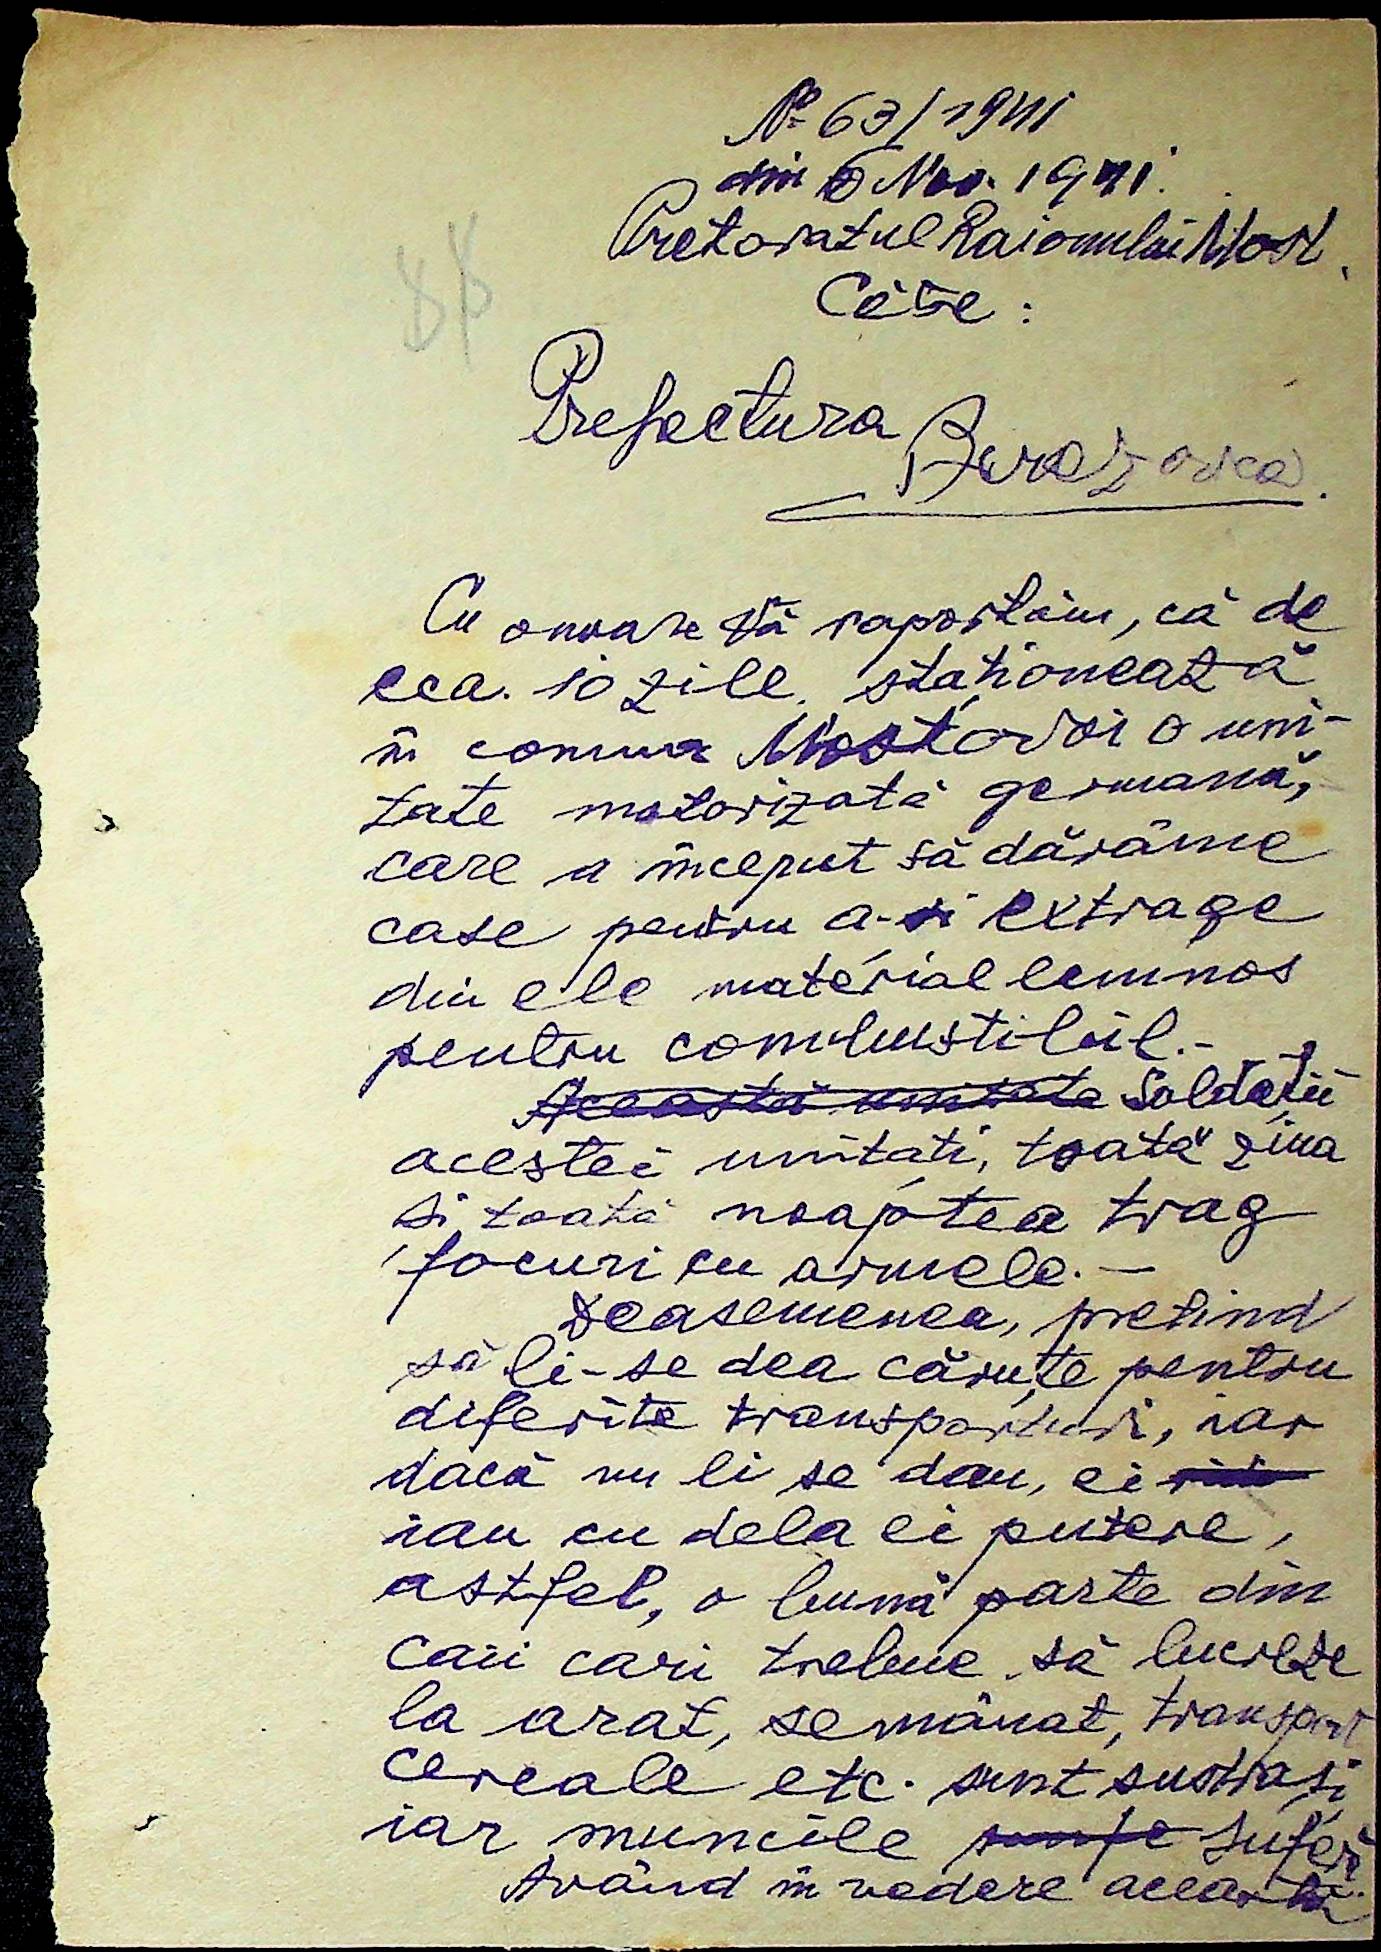 No 63/1941
din 6 Nov. 1941.
Pretoratul Raionului Most.
Către:
Prefectura
Berezovca.
Cu onoare Vă raportăm, că de
cca. 10 zile, staționează
în comuna Mostovoi o uni-
tate motorizată germană,
care a început să dărâme
case pentru a-și extrage
din ele material lemnos
pentru combustibil.-
Această unitate Soldații
acestei unitati, toată ziua
și toată noaptea trag
focuri cu armele.-
Deasemenea, pretind
să li-se dea căruțe pentru
diferite transporturi, iar
dacă nu li se dau, ei
iau cu dela ei putere,
astfel, o bună parte din
caii cari trebue să lucreze
la arat, semănat, transport
cereale etc. sunt sustrași
iar muncile sufără.
Având în vedere această